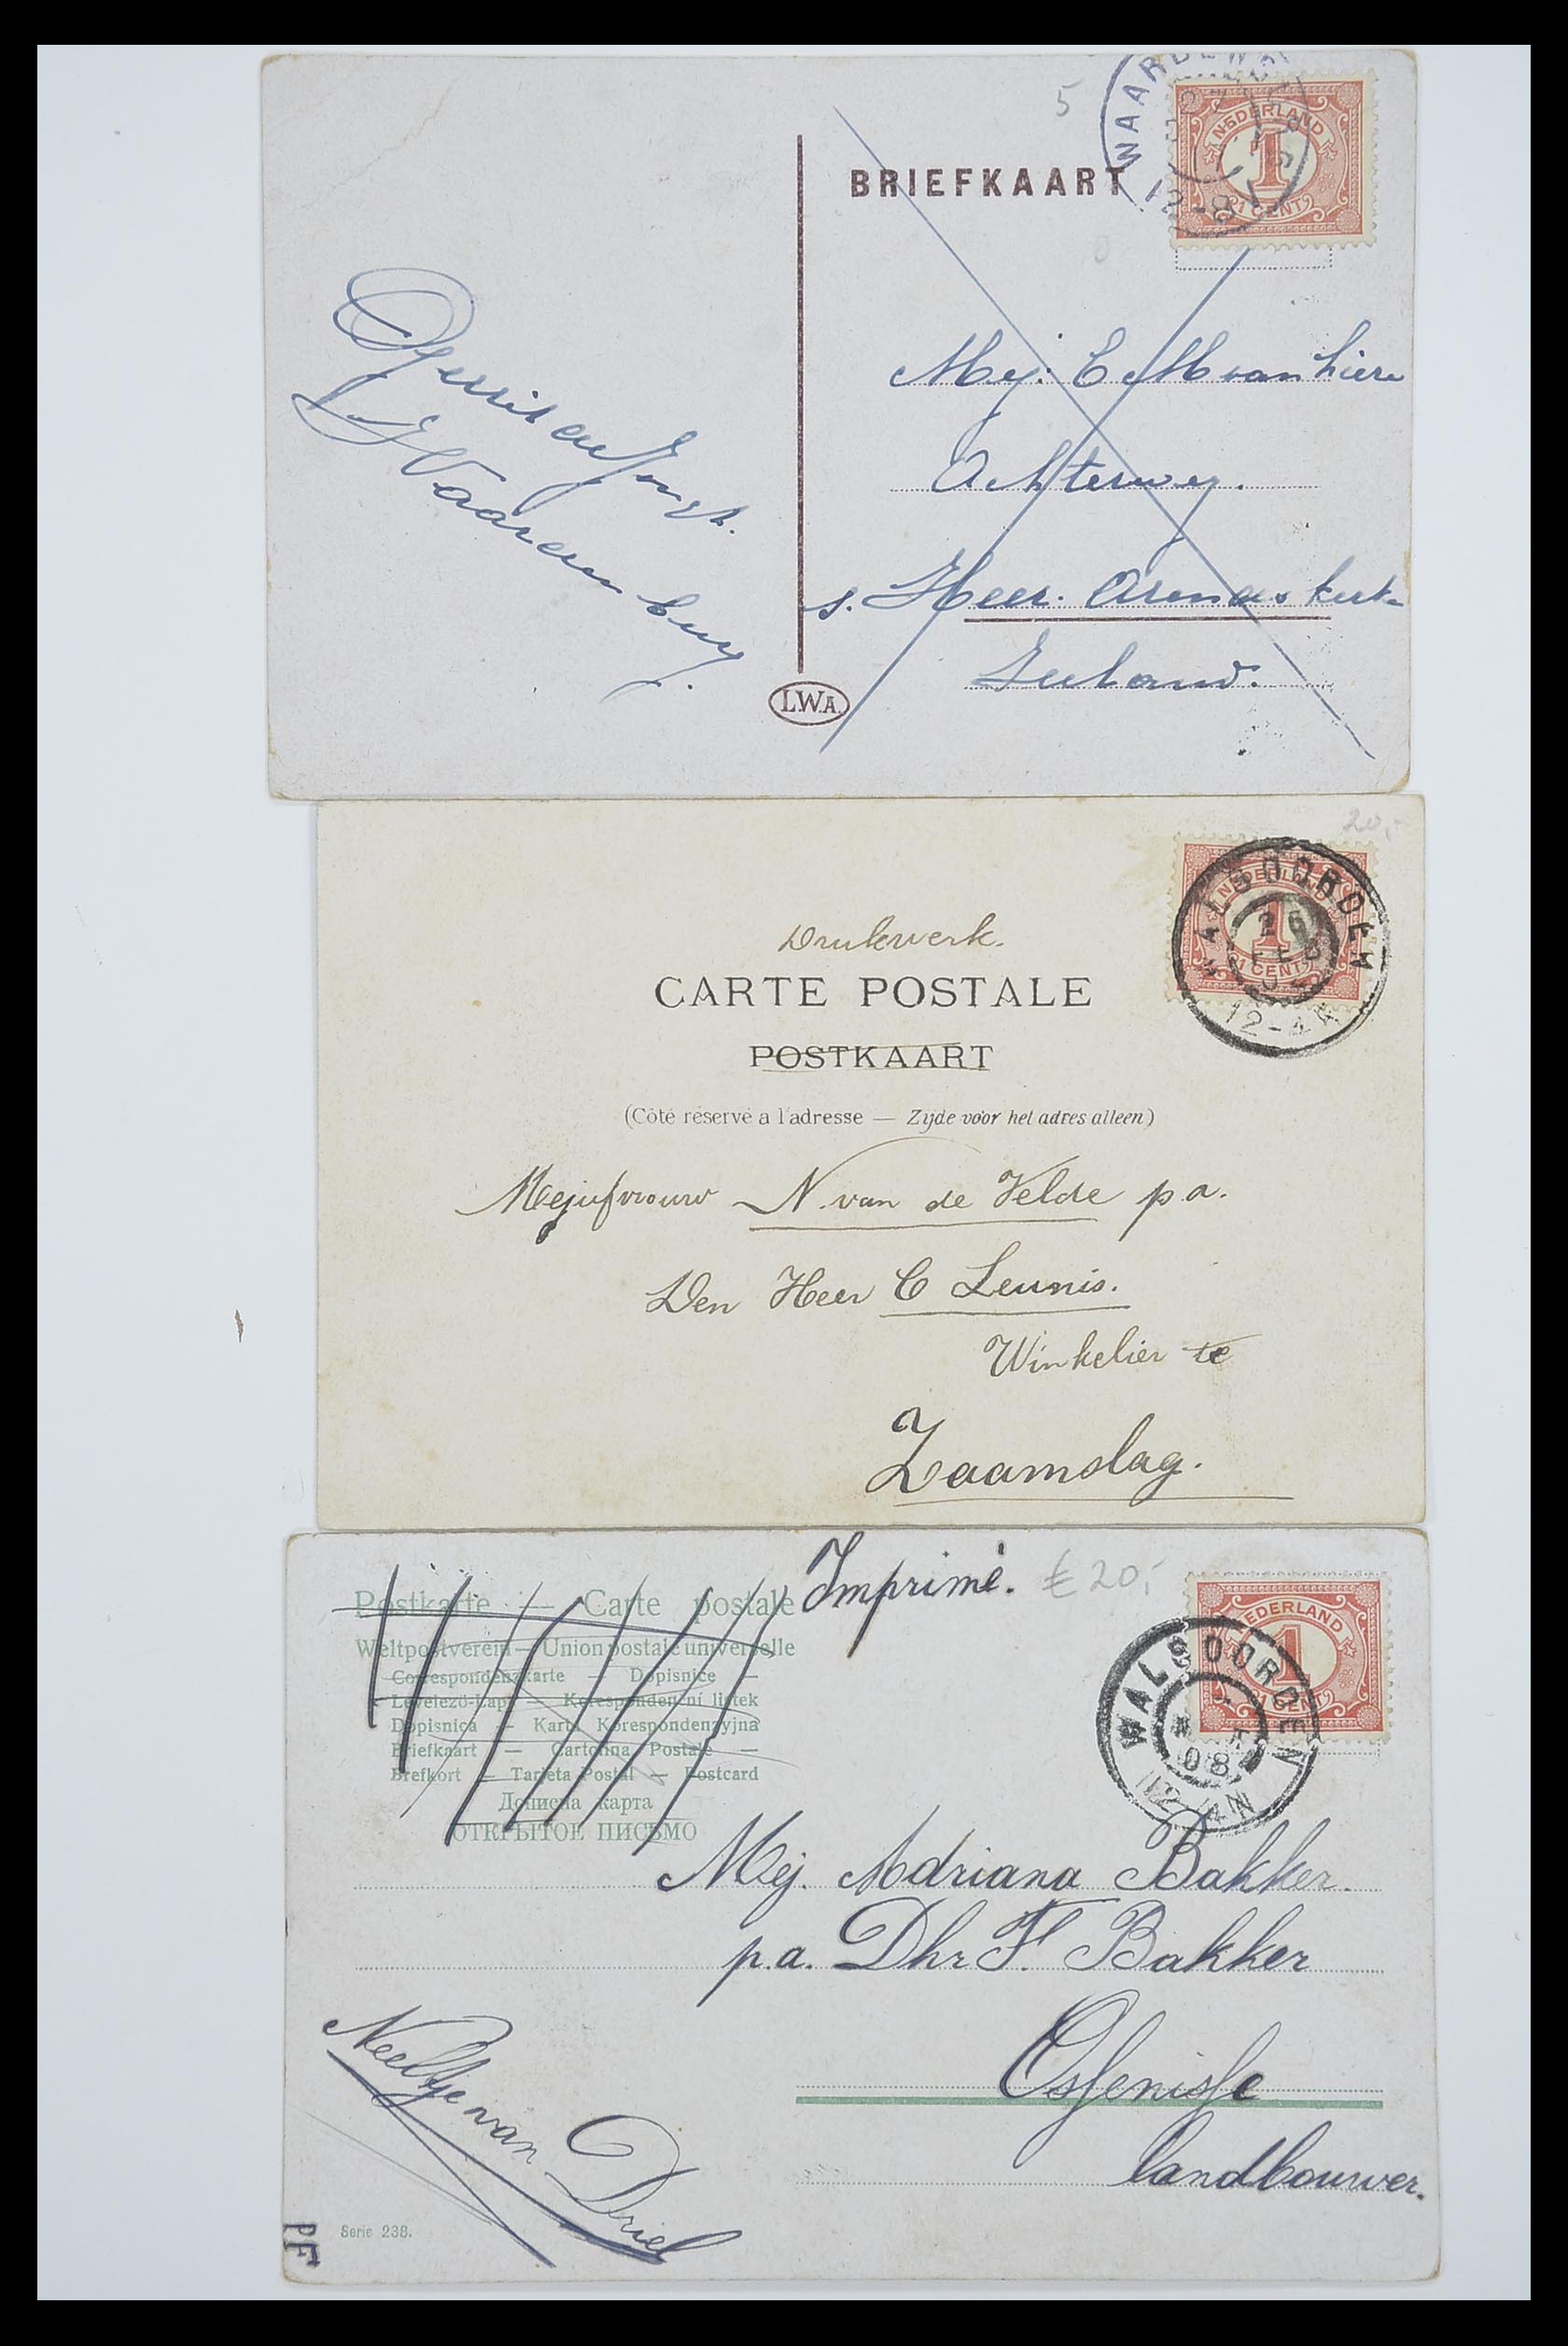 5
WAARDENBURG
NEDERLAND
1
1 CENT
12-8
BRIEFKAART
Mej. C M van Liere
Achterweg.
s. Heer. Arendskerk-
Zeeland.
Gerrit de Jongh.
Waardenburg.
L.W.A.
20,-
WALSOORDEN
NEDERLAND
1
26 FEB
1 CENT
12-4N
Drukwerk.
CARTE POSTALE
POSTKAART
(Côté réservé a l'adresse — Zijde voor het adres alleen)
Mejufvrouw N. van de Velde p.a.
Den Heer C Leunis.
Winkelier te
Zaamslag.
Imprimé. € 20,-
Postkarte — Carte postale
Weltpostverein — Union postale universelle
Correspondenzkarte — Dopisnice —
Levelező-Lap — Korespondenční lístek
Dopisnica — Karta Korespondencyjna
Briefkaart — Cartolina Postale —
Brefkort — Tarjeta Postal — Postcard
Дописна карта
ОТКРЫТОЕ ПИСЬМО
NEDERLAND
1
1 CENT
WALSOORDEN
08
12-4N
Mej. Adriana Bakker.
p.a. Dhr F. Bakker
Ossenisse
landbouwer.
Neeltje van Driel
Serie 238.
PF